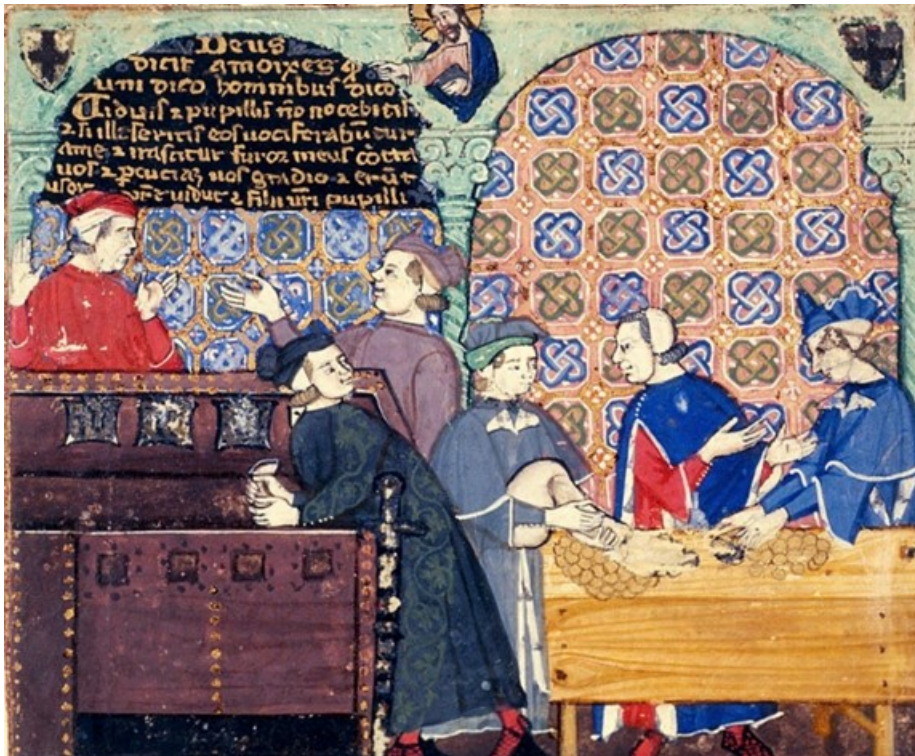 Deus
dicit amoixes q
uni dico hominibus dico
Uiduis ⁊ pupillis nō nocebitis
eos uociferabūtur
ame ⁊ irascitur furor meus cōtra
uos ⁊ ꝑcuciaz uos gladio ⁊ erūt
uidue ⁊ filii uri pupilli